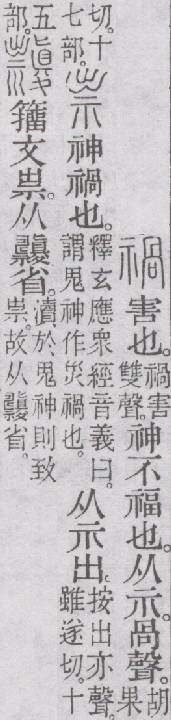 禍害也。禍害雙聲。神不福也。从示。咼聲。胡果
切。十七部。祟神禍也。釋玄應眾經音義曰。謂鬼神作災禍也。从示出。按出亦聲。雖遂切。十
五部。籒文祟。从省。瀆於鬼神則致祟。故从省。